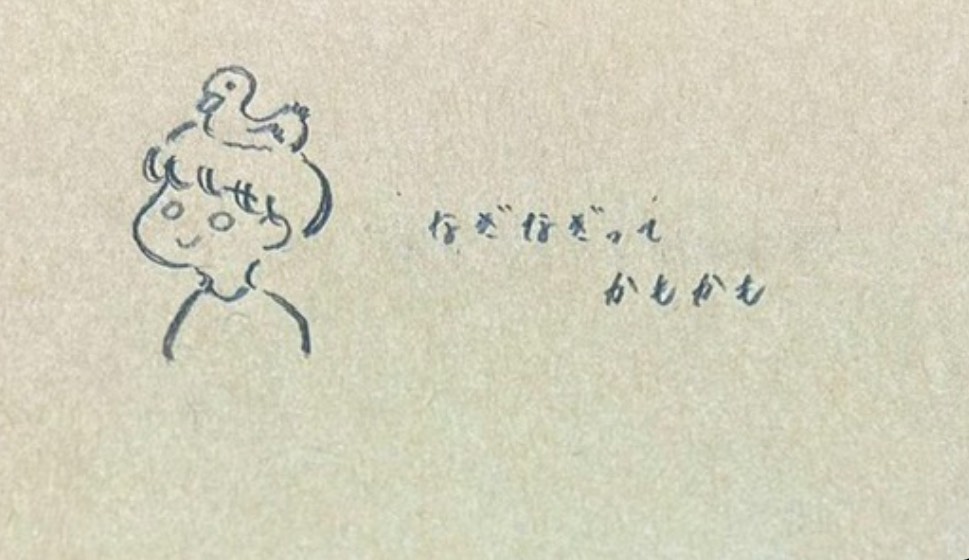 なぎなぎって
かもかも